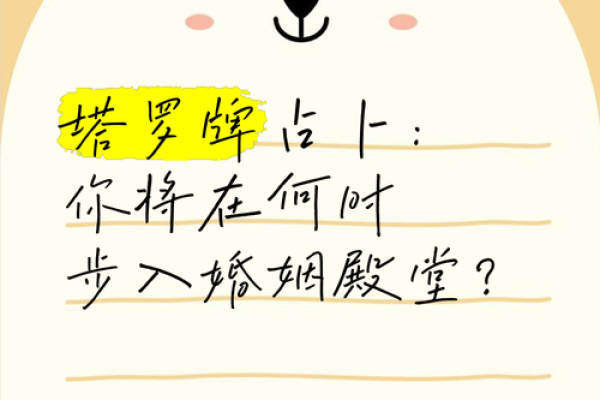 塔罗牌占卜:
你将在何时
步入婚姻殿堂?